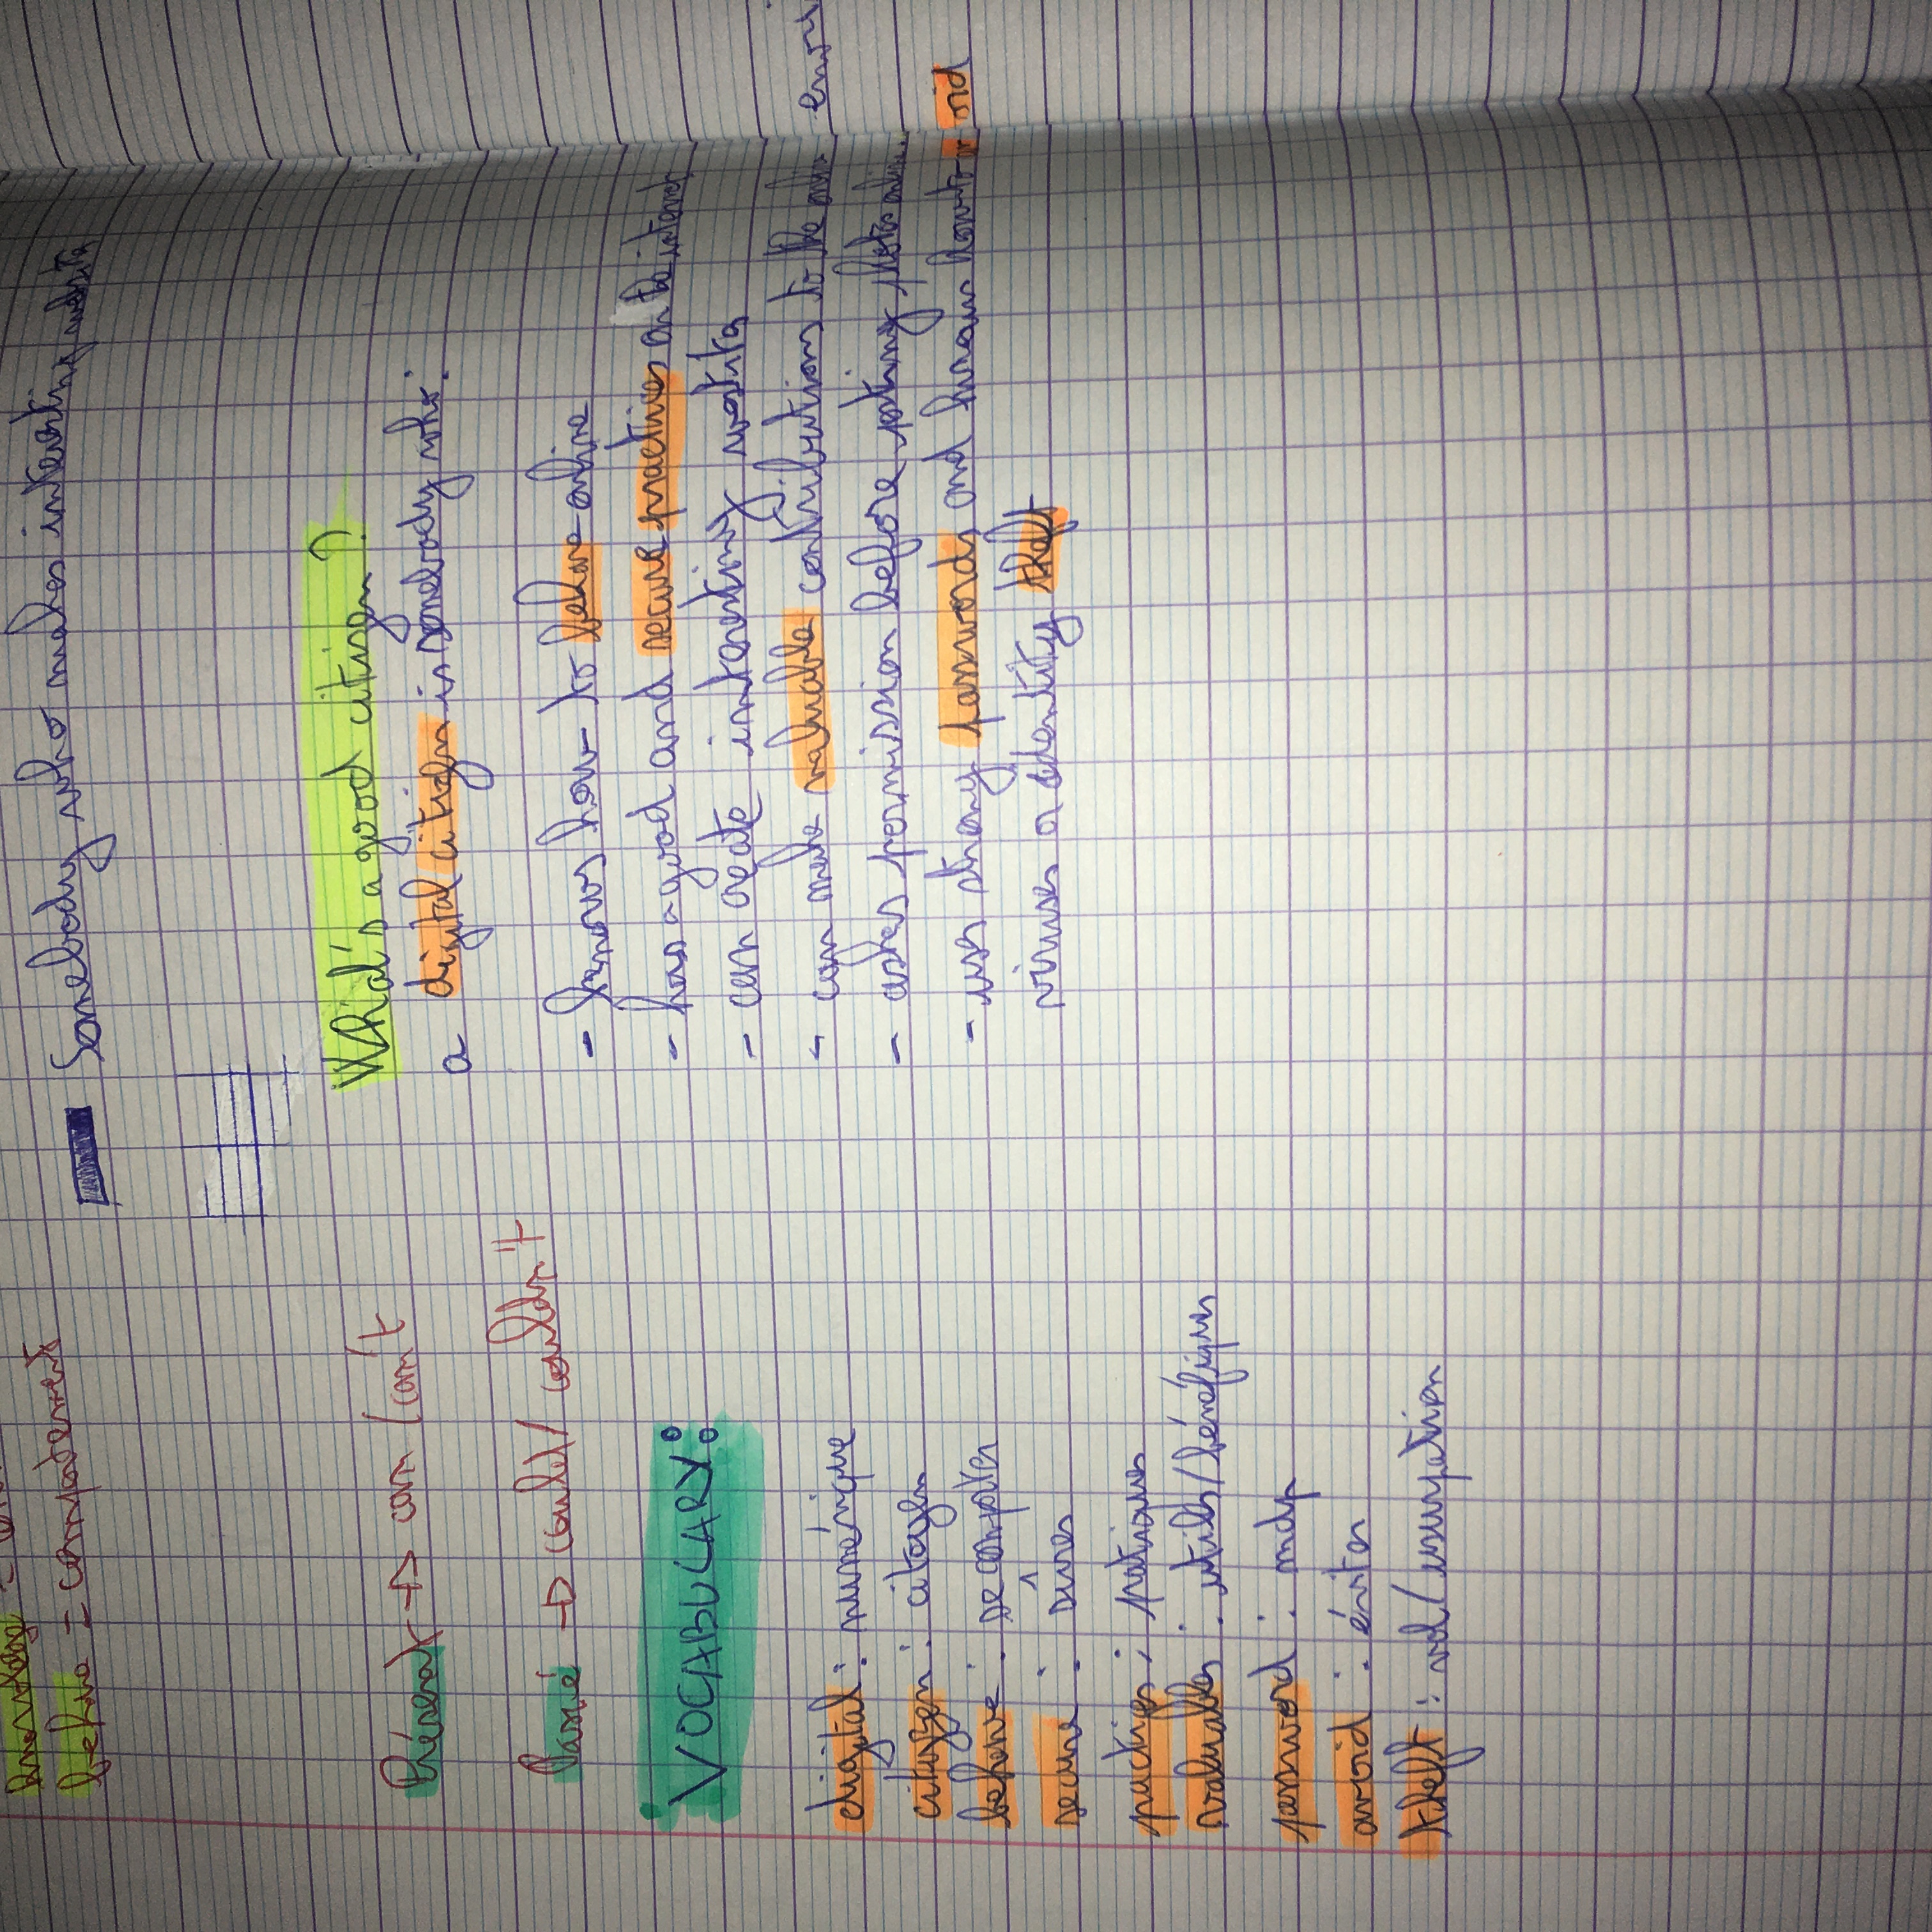 behave = comportement
Somebody who makes interesting website
Présent → can / can't
Passé → could / couldn't
VOCABULARY:
digital : numérique
citizen : citoyen
behave : se comporter
secure : sûres
practices : pratiques
valuables : utiles/bénéfiques
password : mdp
avoid : éviter
theft : vol/usurpation
What's a good citizen?
a digital citizen is somebody who:
- knows how to behave online
- has a good and secure practices on the internet
- can create interesting website
- can make valuable contributions to the online
- askes permission before posting photos online
- uses strong passwords and knows how to avoid
viruses or identity theft